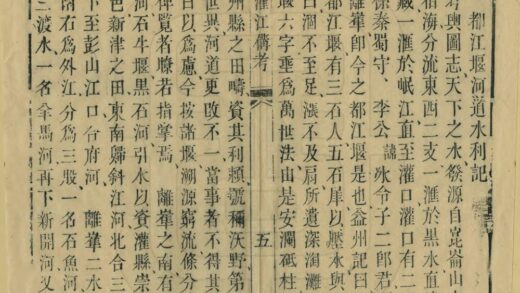 都江堰河道水利記
考輿圖志天下之水發源自崑崙山
海分流東西二支一滙於黑水直
藏一滙於岷江直至灌口灌口有二
秦蜀守 李公諱氷令子二郎君
離崋即今之都江堰是也益州記曰
都江堰有三石人五石犀以壓水與
曰涸不至足漲不及肩所遺深淘灘
堰六字垂爲萬世法山是安瀾砥柱
灌江備考 五
州縣之田疇資其利頼號稱沃野第
世異河道更改不一當事者不得其
以爲慮今按諸堰溯源窮流條分
俾覽者瞭若指掌焉 離崋之南有
河石牛堰黑石河引水以資灌縣崇
邑新津之田東南歸斜江河北合三
下至彭山江口合府河 離崋二水
右爲外江分爲三股一名石魚河
三渡水一名金馬河再下新開河又